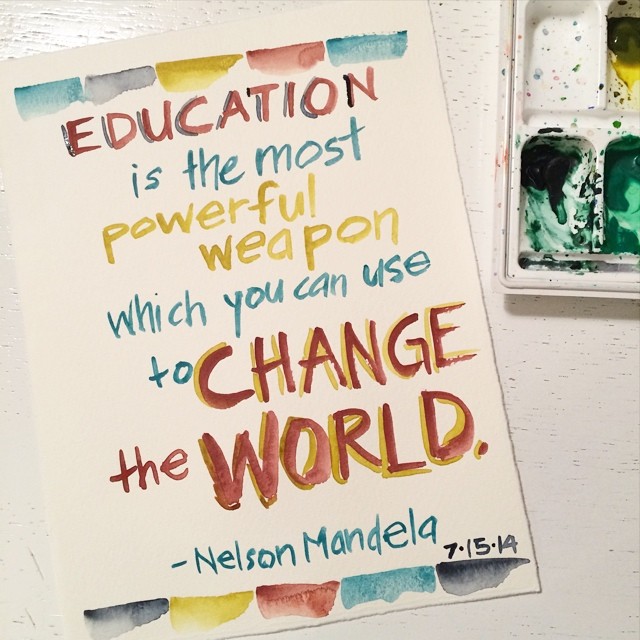 EDUCATION
is the most
powerful
weapon
which you can use
to CHANGE
the WORLD.
- Nelson Mandela
7.15.14